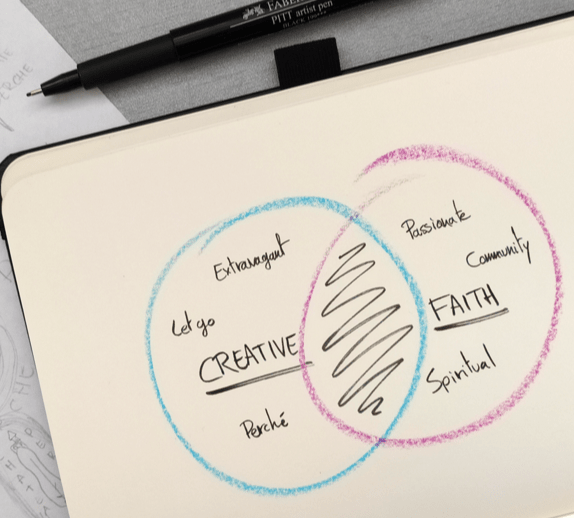 FABER
PITT artist pen
BLACK
Extravagant
Let go
CREATIVE
Perché
Passionate
Community
FAITH
Spiritual